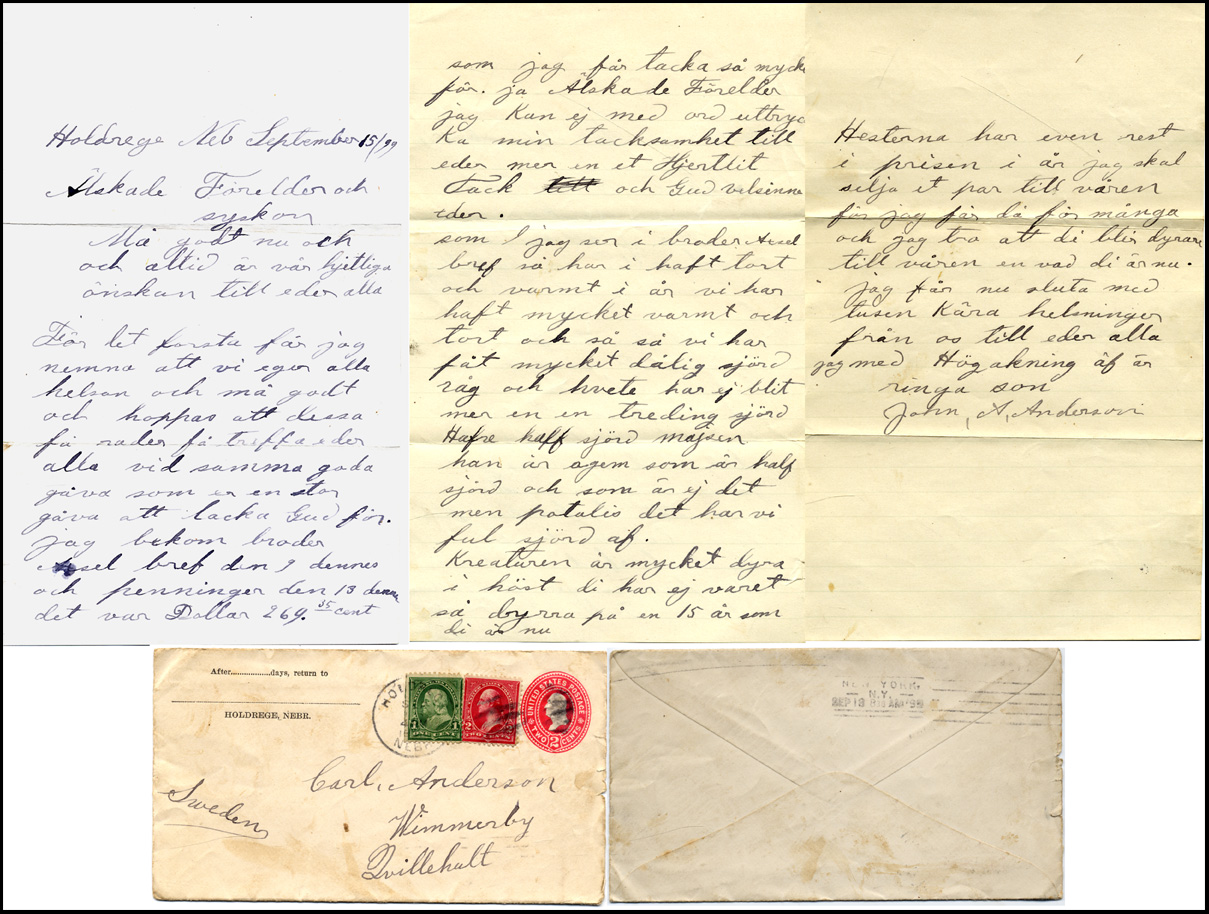 Holdrege Neb September 15/99
Älskade Förelder och
syskon
Må godt nu och
och altid är vår hjettliga
önskan till eder alla
För det forsta får jag
nemna att vi eger alla
helsan och må godt
och hoppas att dessa
få rader få treffa eder
alla vid samma goda
gåva som er en stor
gåva att tacka Gud för.
jag bekom broder
Axel bref den 9 dennes
och penninger den 13 dennes
det var Dollar 264. 35 cent
som jag får tacka så mycke
för. ja Älskade Förelder
jag Kan ej med ord uttryc
Ka min tacksamhet till
eder mer en et Hjertlit
Tack till och Gud velsinne
eder.
som I jag ser i broder Axsel
bref så har i haft tort
och varmt i år vi har
haft mycket varmt och
tort och så så vi har
fåt mycket dålig sjörd
råg och hvete har ej blit
mer en en treding sjörd
Hafre half sjörd majsen
han är agem som är half
sjörd och som är ej det
men potatis det har vi
ful sjörd af.
Kreaturen är mycket dyra
i höst di har ej varet
så dyrra på en 15 år som
di är nu
Hesterna har even rest
i prisen i år jag skal
selja et par till våren
för jag får då för många
och jag tro att di blir dyrare
till våren en vad di är nu.
jag får nu sluta med
tusen Kära helsninger
från os till eder alla
jag med Högakning äf är
ringa son
John, A, Anderson
After..................days, return to
HOLDREGE, NEBR.
HOL
NEBR
ONE CENT
2 TWO CENTS 2
UNITED STATES POSTAGE
TWO 2 CENTS
Carl, Anderson
Wimmerby
Qvillehult
Sweden
NEW YORK,
N.Y.
SEP 19 8 AM 99